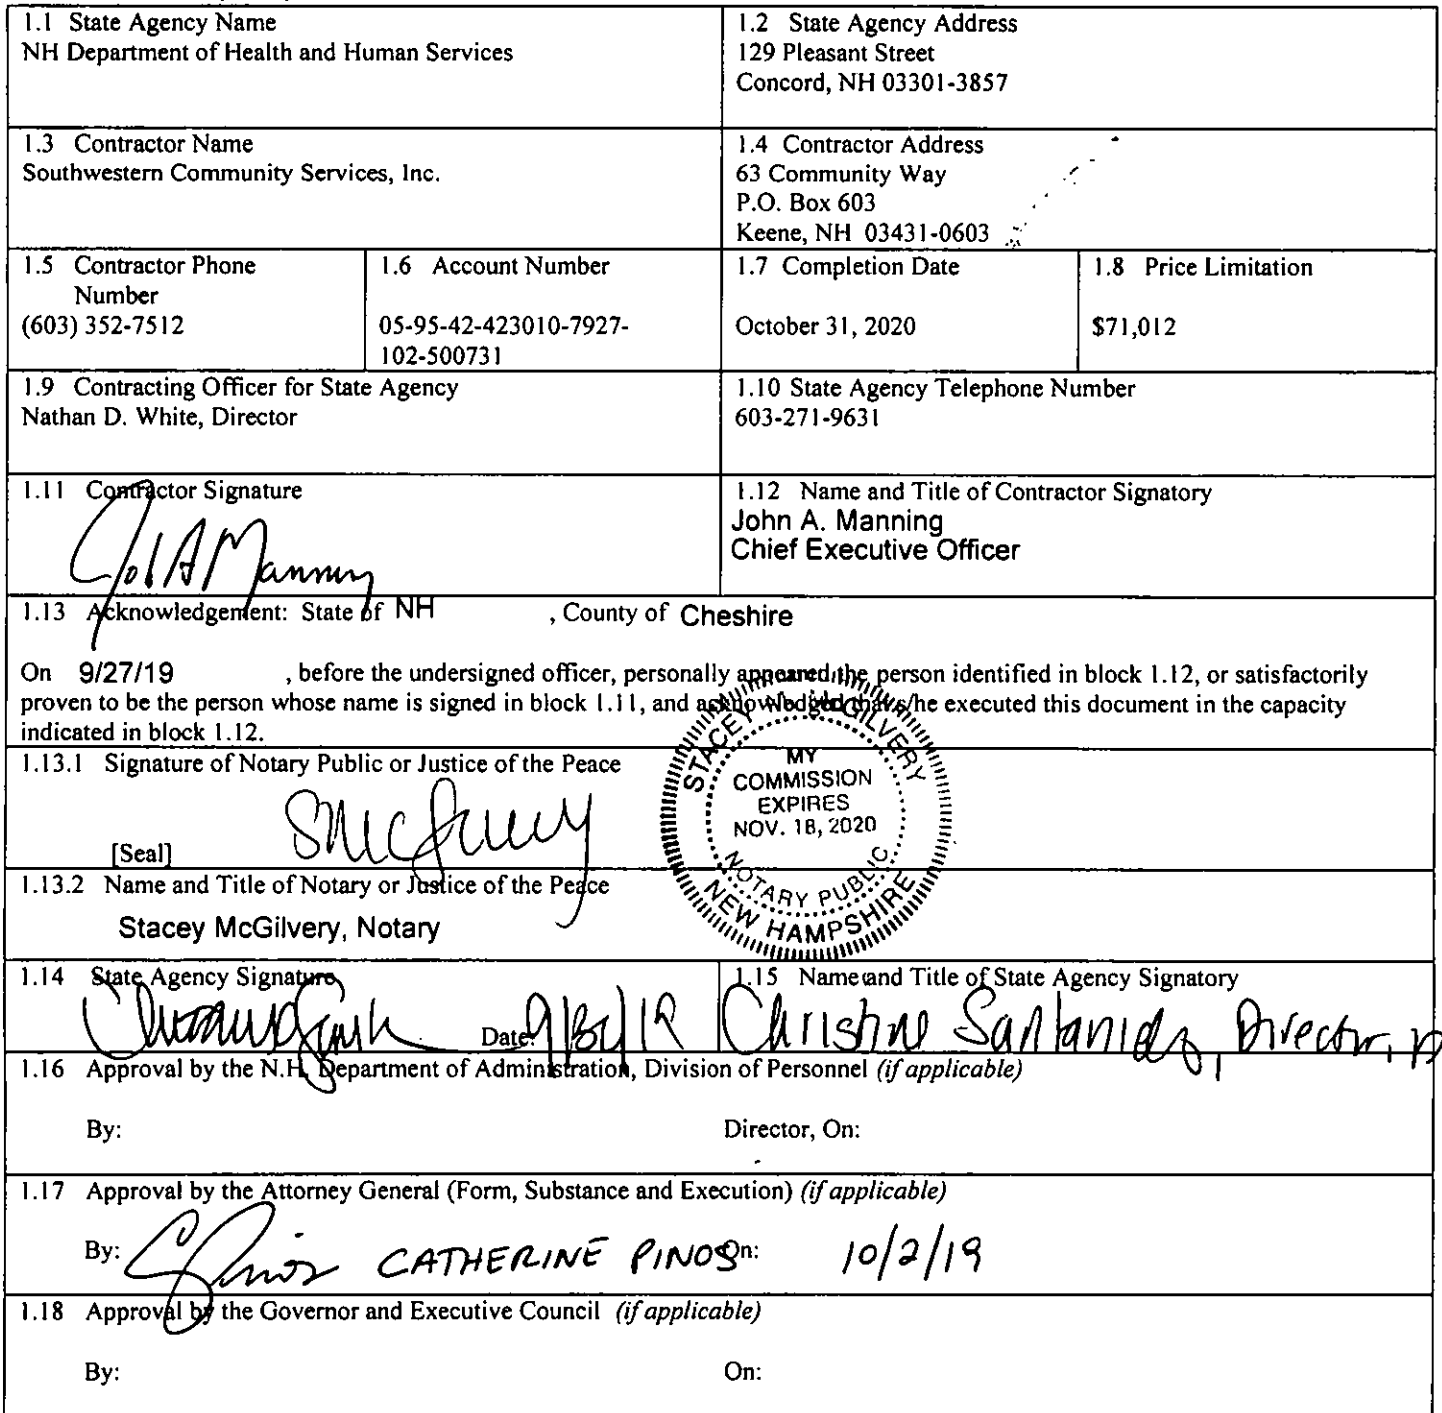 1.1 State Agency Name
NH Department of Health and Human Services
1.2 State Agency Address
129 Pleasant Street
Concord, NH 03301-3857
1.3 Contractor Name
Southwestern Community Services, Inc.
1.4 Contractor Address
63 Community Way
P.O. Box 603
Keene, NH 03431-0603
1.5 Contractor Phone
Number
(603) 352-7512
1.6 Account Number
05-95-42-423010-7927-
102-500731
1.7 Completion Date
October 31, 2020
1.8 Price Limitation
$71,012
1.9 Contracting Officer for State Agency
Nathan D. White, Director
1.10 State Agency Telephone Number
603-271-9631
1.11 Contractor Signature
Manning
1.12 Name and Title of Contractor Signatory
John A. Manning
Chief Executive Officer
1.13 Acknowledgement: State of NH , County of Cheshire
On 9/27/19 , before the undersigned officer, personally appeared the person identified in block 1.12, or satisfactorily
proven to be the person whose name is signed in block 1.11, and acknowledged that s/he executed this document in the capacity
indicated in block 1.12.
1.13.1 Signature of Notary Public or Justice of the Peace
[Seal]
STACEY MCGILVERY
MY
COMMISSION
EXPIRES
NOV. 18, 2020
NOTARY PUBLIC
NEW HAMPSHIRE
1.13.2 Name and Title of Notary or Justice of the Peace
Stacey McGilvery, Notary
1.14 State Agency Signature
Date:
1.15 Name and Title of State Agency Signatory
Christine Santaniello, Director,
1.16 Approval by the N.H. Department of Administration, Division of Personnel (if applicable)
By: Director, On:
1.17 Approval by the Attorney General (Form, Substance and Execution) (if applicable)
By: CATHERINE PINOS On: 10/2/19
1.18 Approval by the Governor and Executive Council (if applicable)
By: On: